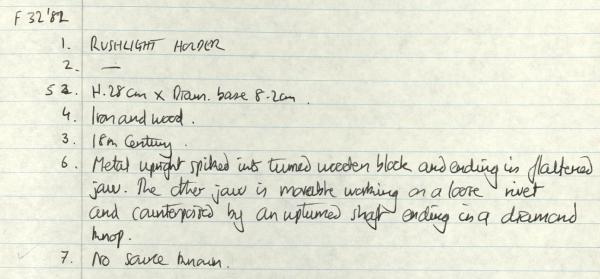 F 32'82
1. RUSHLIGHT HOLDER
2. —
5 2. H. 28cm x Diam. base 8.2cm.
4. Iron and wood.
3. 18th Century.
6. Metal upright spiked into turned wooden block and ending in flattened
jaw. The other jaw is movable working on a loose rivet
and counterpoised by an upturned shaft ending in a diamond
knop.
7. No source known.